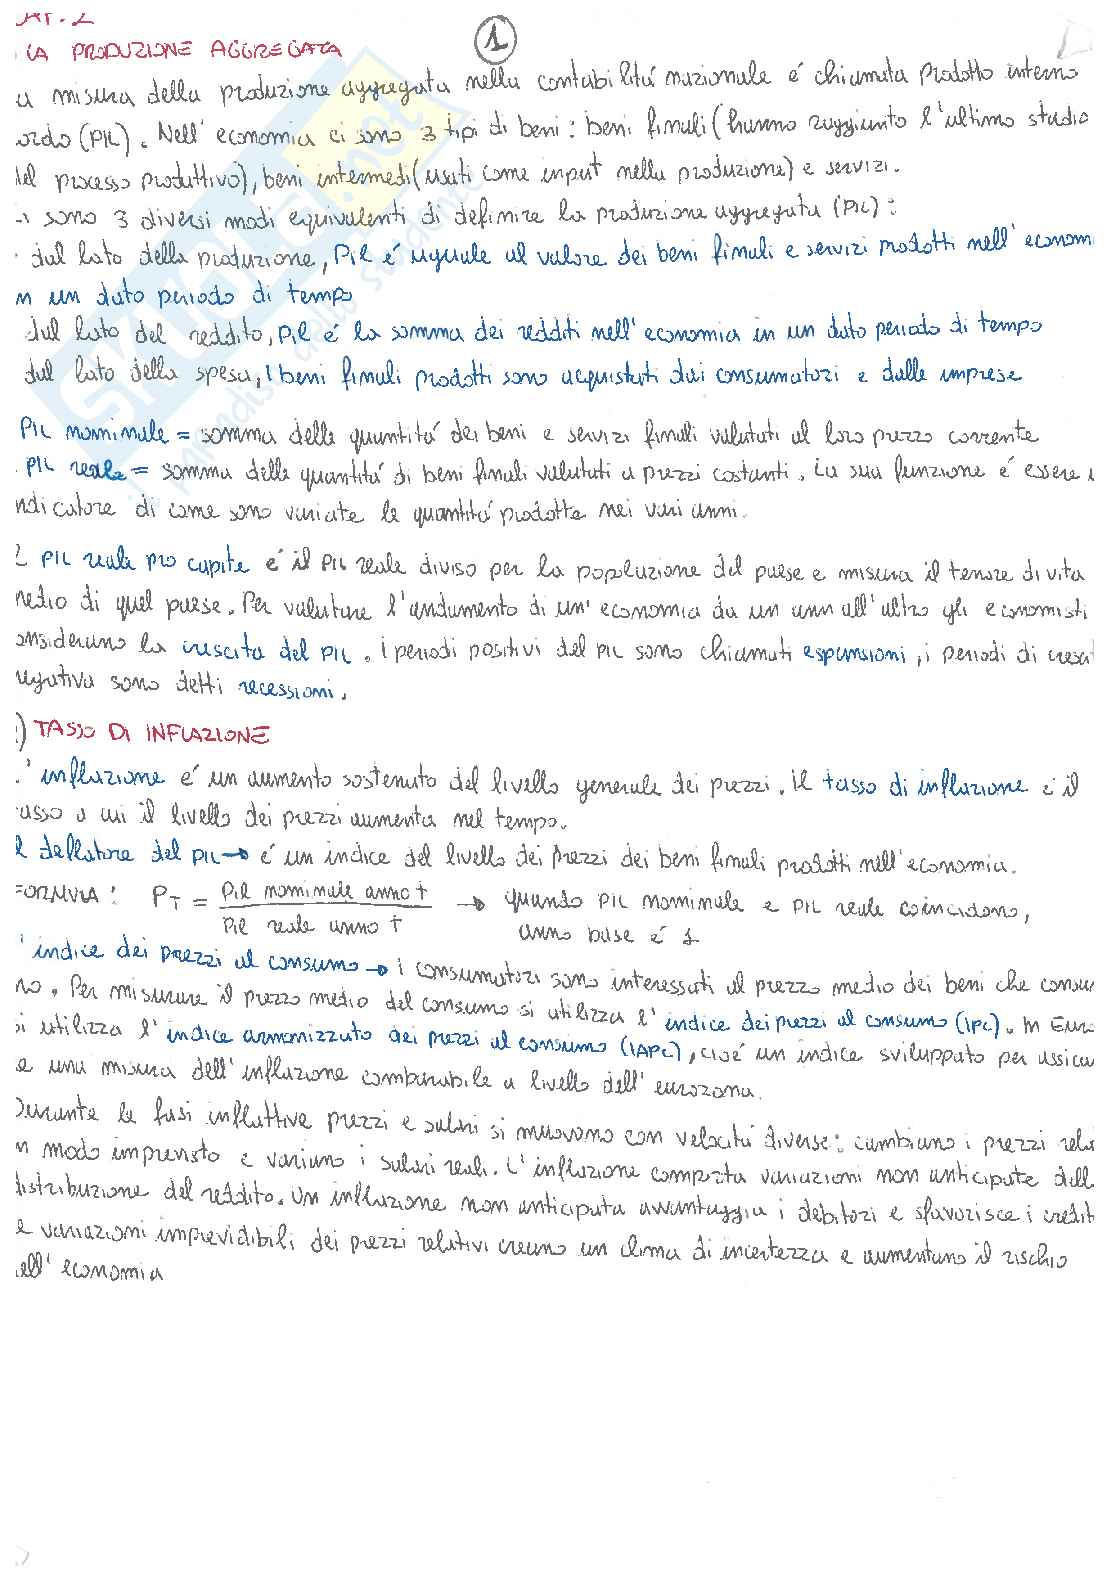 LA PRODUZIONE AGGREGATA
1
a misura della produzione aggregata nella contabilitá nazionale é chiamata Prodotto interno
ordo (PIL). Nell' economia ci sono 3 tipi di beni: beni finali (hanno raggiunto l'ultimo stadio
del processo produttivo), beni intermedi (usati come input nella produzione) e servizi.
sono 3 diversi modi equivalenti di definire la produzione aggregata (PIL):
dal lato della produzione, Pil é uguale al valore dei beni finali e servizi prodotti nell' econom
n un dato periodo di tempo
dal lato del reddito, Pil é la somma dei redditi nell' economia in un dato periodo di tempo
dal lato della spesa, I beni finali prodotti sono acquistati dai consumatori e dalle imprese
PIL nominale = somma delle quantitá dei beni e servizi finali valutati al loro prezzo corrente
PIL reale = somma delle quantitá di beni finali valutati a prezzi costanti. La sua funzione é essere
ndicatore di come sono variate le quantitá prodotte nei vari anni.
l PIL reale pro capite é il PIL reale diviso per la popolazione del paese e misura il tenore di vita
medio di quel paese. Per valutare l'andamento di un' economia da un ann all'altro gli economisti
onsiderano la crescita del PIL. i periodi positivi del PIL sono chiamati espansioni, i periodi di cresci
negativa sono detti recessioni.
) TASSO DI INFLAZIONE
' inflazione é un aumento sostenuto del livello generale dei prezzi. il tasso di inflazione é il
tasso a cui il livello dei prezzi aumenta nel tempo.
l deflatore del PIL → é un indice del livello dei Prezzi dei beni finali prodotti nell'economia.
FORMULA: PT = Pil nominale anno t / Pil reale anno t → quando PIL nominale e PIL reale coincidono,
anno base é 1
' indice dei prezzi al consumo → i consumatori sono interessati al prezzo medio dei beni che consu
no. Per misurare il prezzo medio del consumo si utilizza l' indice dei prezzi al consumo (IPC). In Euro
si utilizza l' indice armonizzato dei prezzi al consumo (IAPC), cioé un indice sviluppato per assicu
e una misura dell' inflazione comparabile a livello dell' eurozona.
Durante le fasi inflattive prezzi e salari si muovono con velocitá diverse: cambiano i prezzi rela
n modo imprevisto e variano i salari reali. L' inflazione comporta variazioni non anticipate dell
distribuzione del reddito. Un inflazione non anticipata avvantaggia i debitori e sfavorisce i credit
e variazioni imprevidibili dei prezzi relativi creano un clima di incertezza e aumentano il rischio
ell' economia